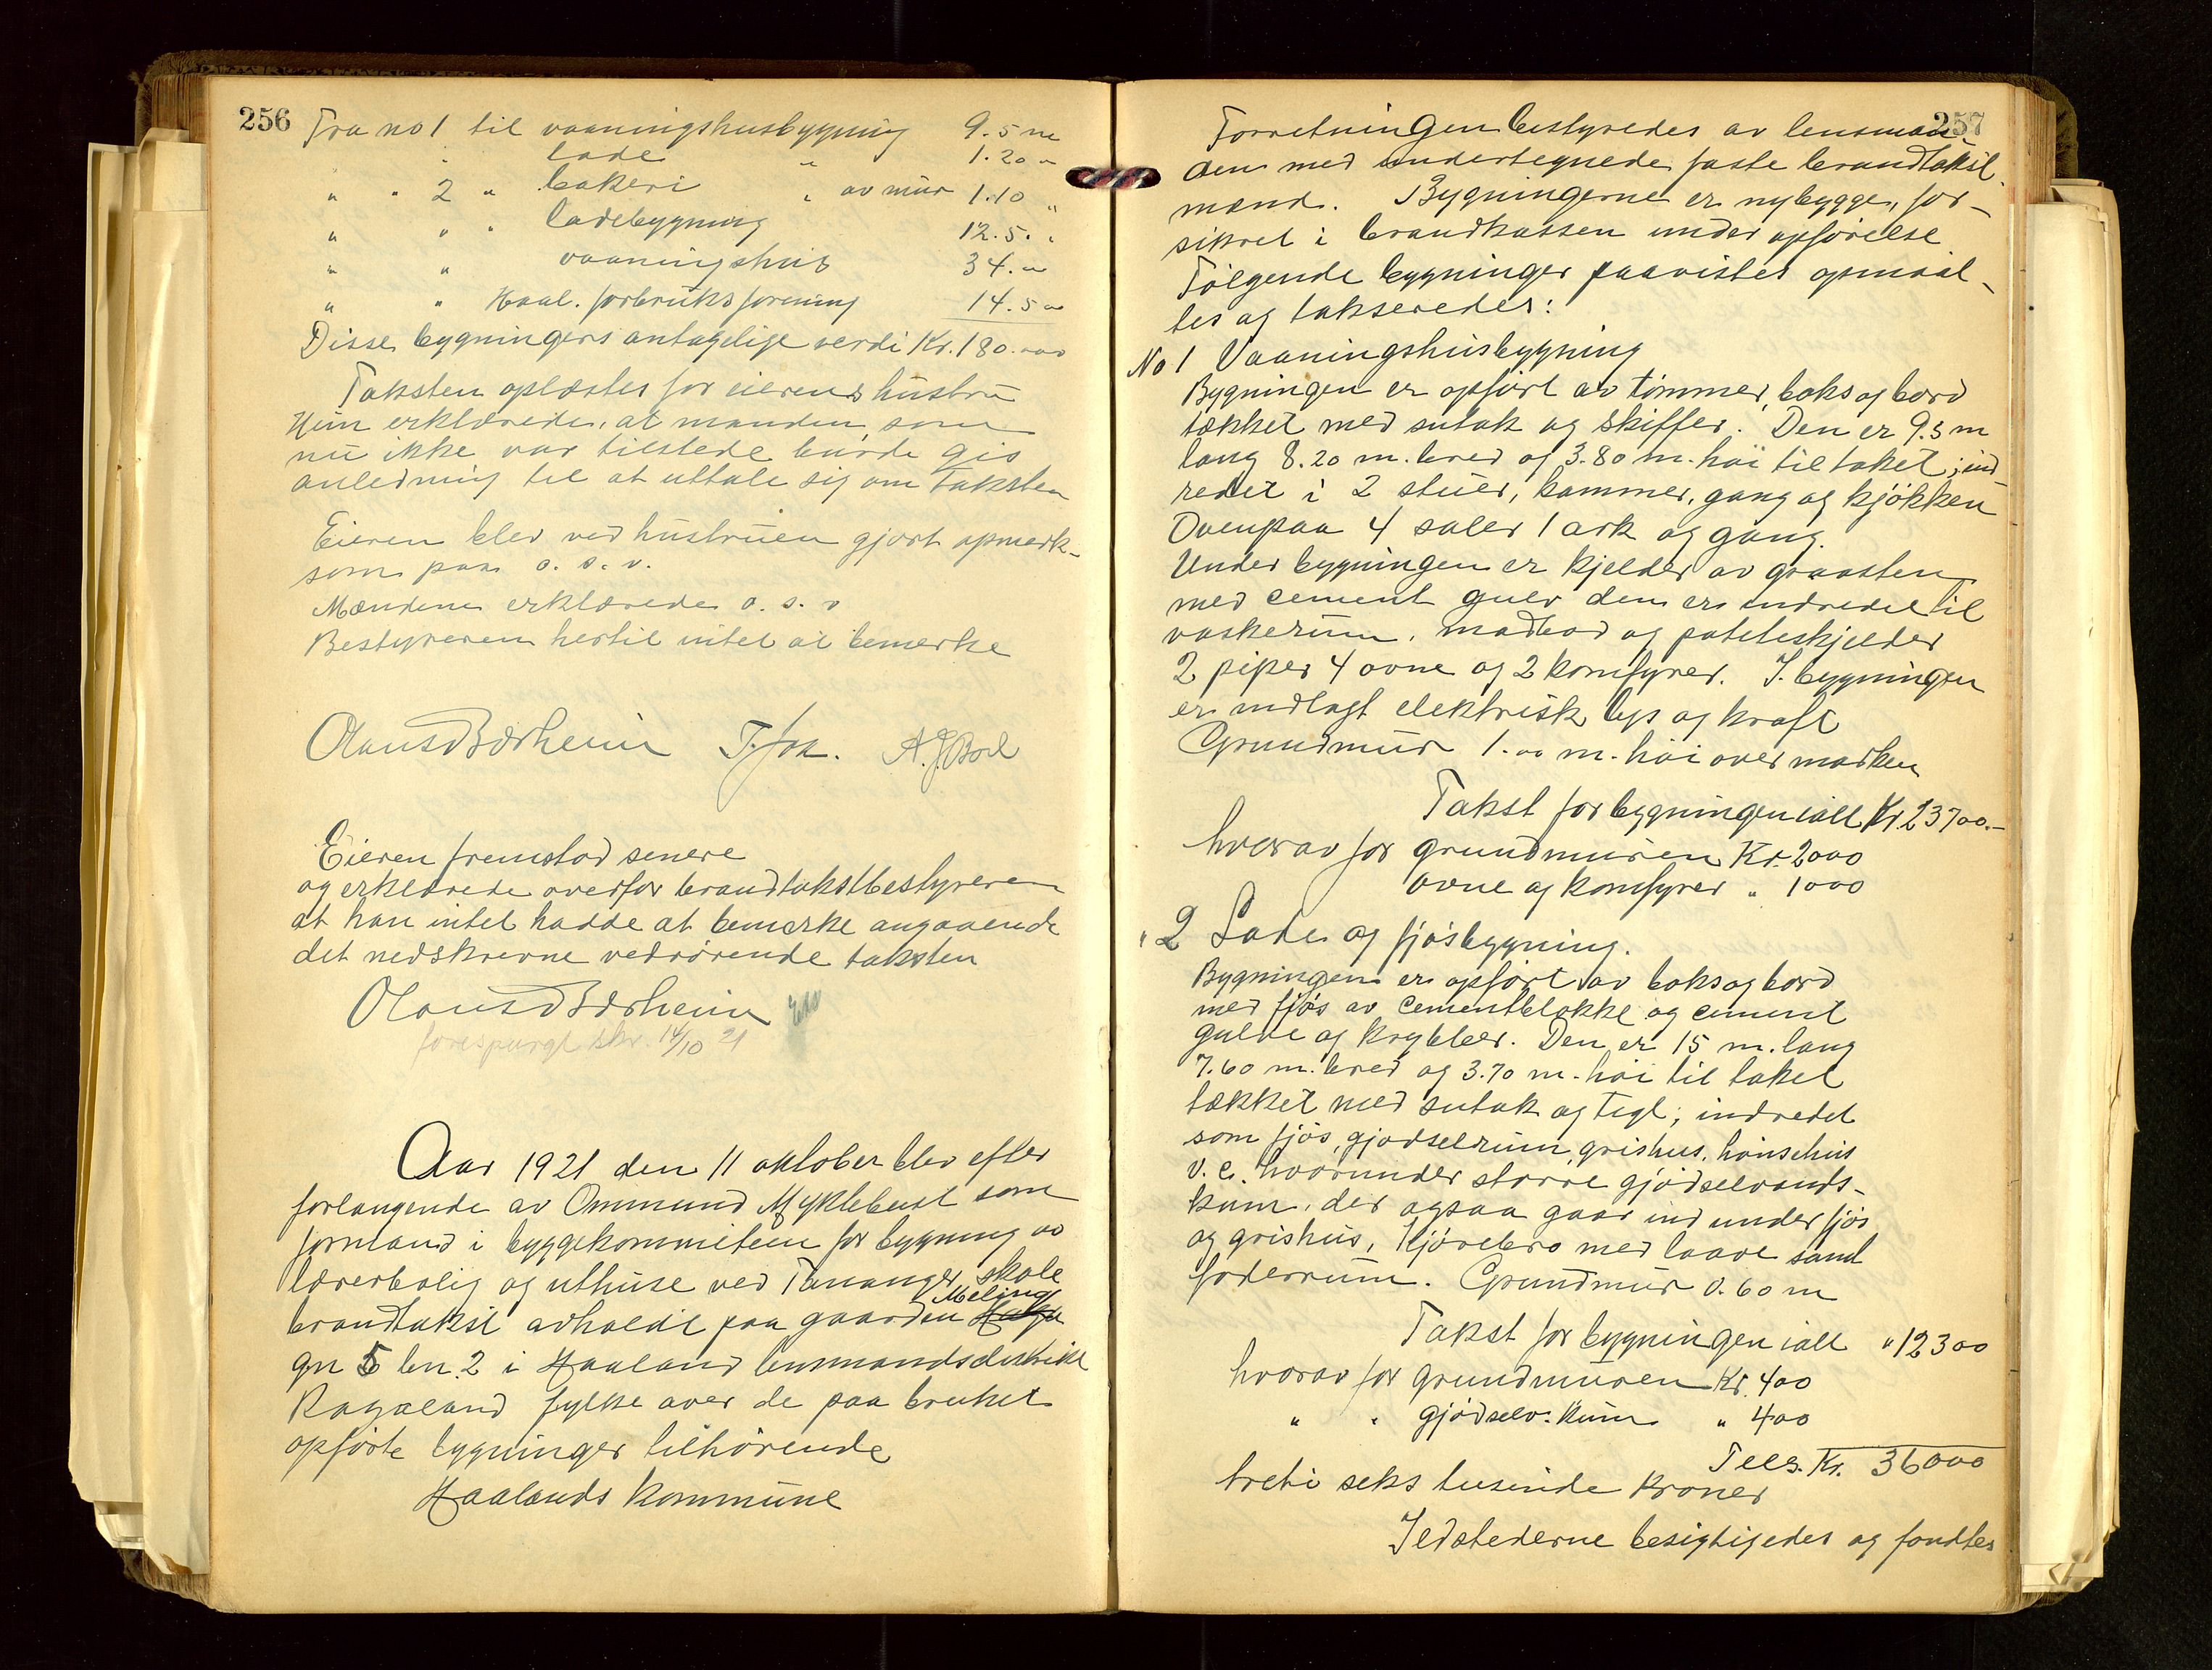 256
Fra no 1 til vaaningshusbygning 9.5 m
" lade " 1.20 "
" " 2 " bakeri " av mur 1.10 "
" " " ladebygning 12.5. "
" " vaaningshus 34. "
" " Haal. forbruksforening 14.5 "
Disse bygningers antagelige verdi Kr. 180.000
Taksten oplæstes for eierens hustru
Hun erklærede, at manden, som
nu ikke var tilstede burde gis
anledning til at uttale sig om taksten
Eieren blev ved hustruen gjort opmerk-
som paa o. s. v.
Mændene erklærede o. s. v
Bestyreren hertil intet at bemerke
Olaus Bærheim T. Joa. A. J. Bod
Eieren fremstod senere
og erklærede overfor brandtakstbestyreren
at han intet hadde at bemerke angaaende
det nedskrevne vedrørende taksten
Olaus Bærheim
forespurgt skr. 14/10 21
Aar 1921 den 11 oktober blev efter
forlangende av Ommund Myklebust som
formand i byggekommiteen for bygning av
lærerbolig og uthuse ved Tananger skole
Meling
brandtakst avholdt paa gaarden
gn 5 bn. 2 i Haaland lensmandsdistrikt
Rogaland fylke over de paa bruket
opførte bygninger tilhørende
Haalands kommune
257
Forretningen bestyredes av lensman
den med undertegnede faste brandtakst-
mænd. Bygningerne er nybygge, for-
sikret i brandkassen under opførelse
Følgende bygninger paavistes opmaal-
tes og takseredes:
No 1 Vaaningshusbygning
Bygningen er opført av tømmer, boks og bord
tækket med sutak og skiffer. Den er 9.5 m
lang 8.20 m. bred og 3.80 m. høi til taket; ind-
redet i 2 stuer, kammer, gang og kjøkken
Ovenpaa 4 saler 1 ark og gang.
Under bygningen er kjelder av graasten
med cement gulv den er indredet til
vaskerum, madbod og poteteskjelder
2 piper 4 ovne og 2 komfyrer. I bygningen
er indlagt elektrisk lys og kraft
Grundmur 1.00 m. høi over marken
Takst for bygningen ialt Kr. 23700.-
hvorav for grundmuren Kr. 2000
ovne og komfyrer " 1000
" 2 Lade og fjøsbygning.
Bygningen er opført av boks og bord
med fjøs av cementblokke og cement
gulve og krybber. Den er 15 m. lang
7.60 m. bred og 3.70 m. høi til taket
tækket med sutak og tegl; indredet
som fjøs, gjødselrum, grishus, hønsehus
v. c. hvorunder større gjødselvands-
kum, der ogsaa gaar ind under fjøs
og grishus, kjørebro med laave samt
foderrum. Grundmur 0.60 m
Takst for bygningen ialt " 12300
hvorav for grundmuren Kr. 400
" " gjødselv. kum " 400
Tils. Kr. 36000
treti seks tusinde kroner
Ildstederne besigtigedes og fandtes